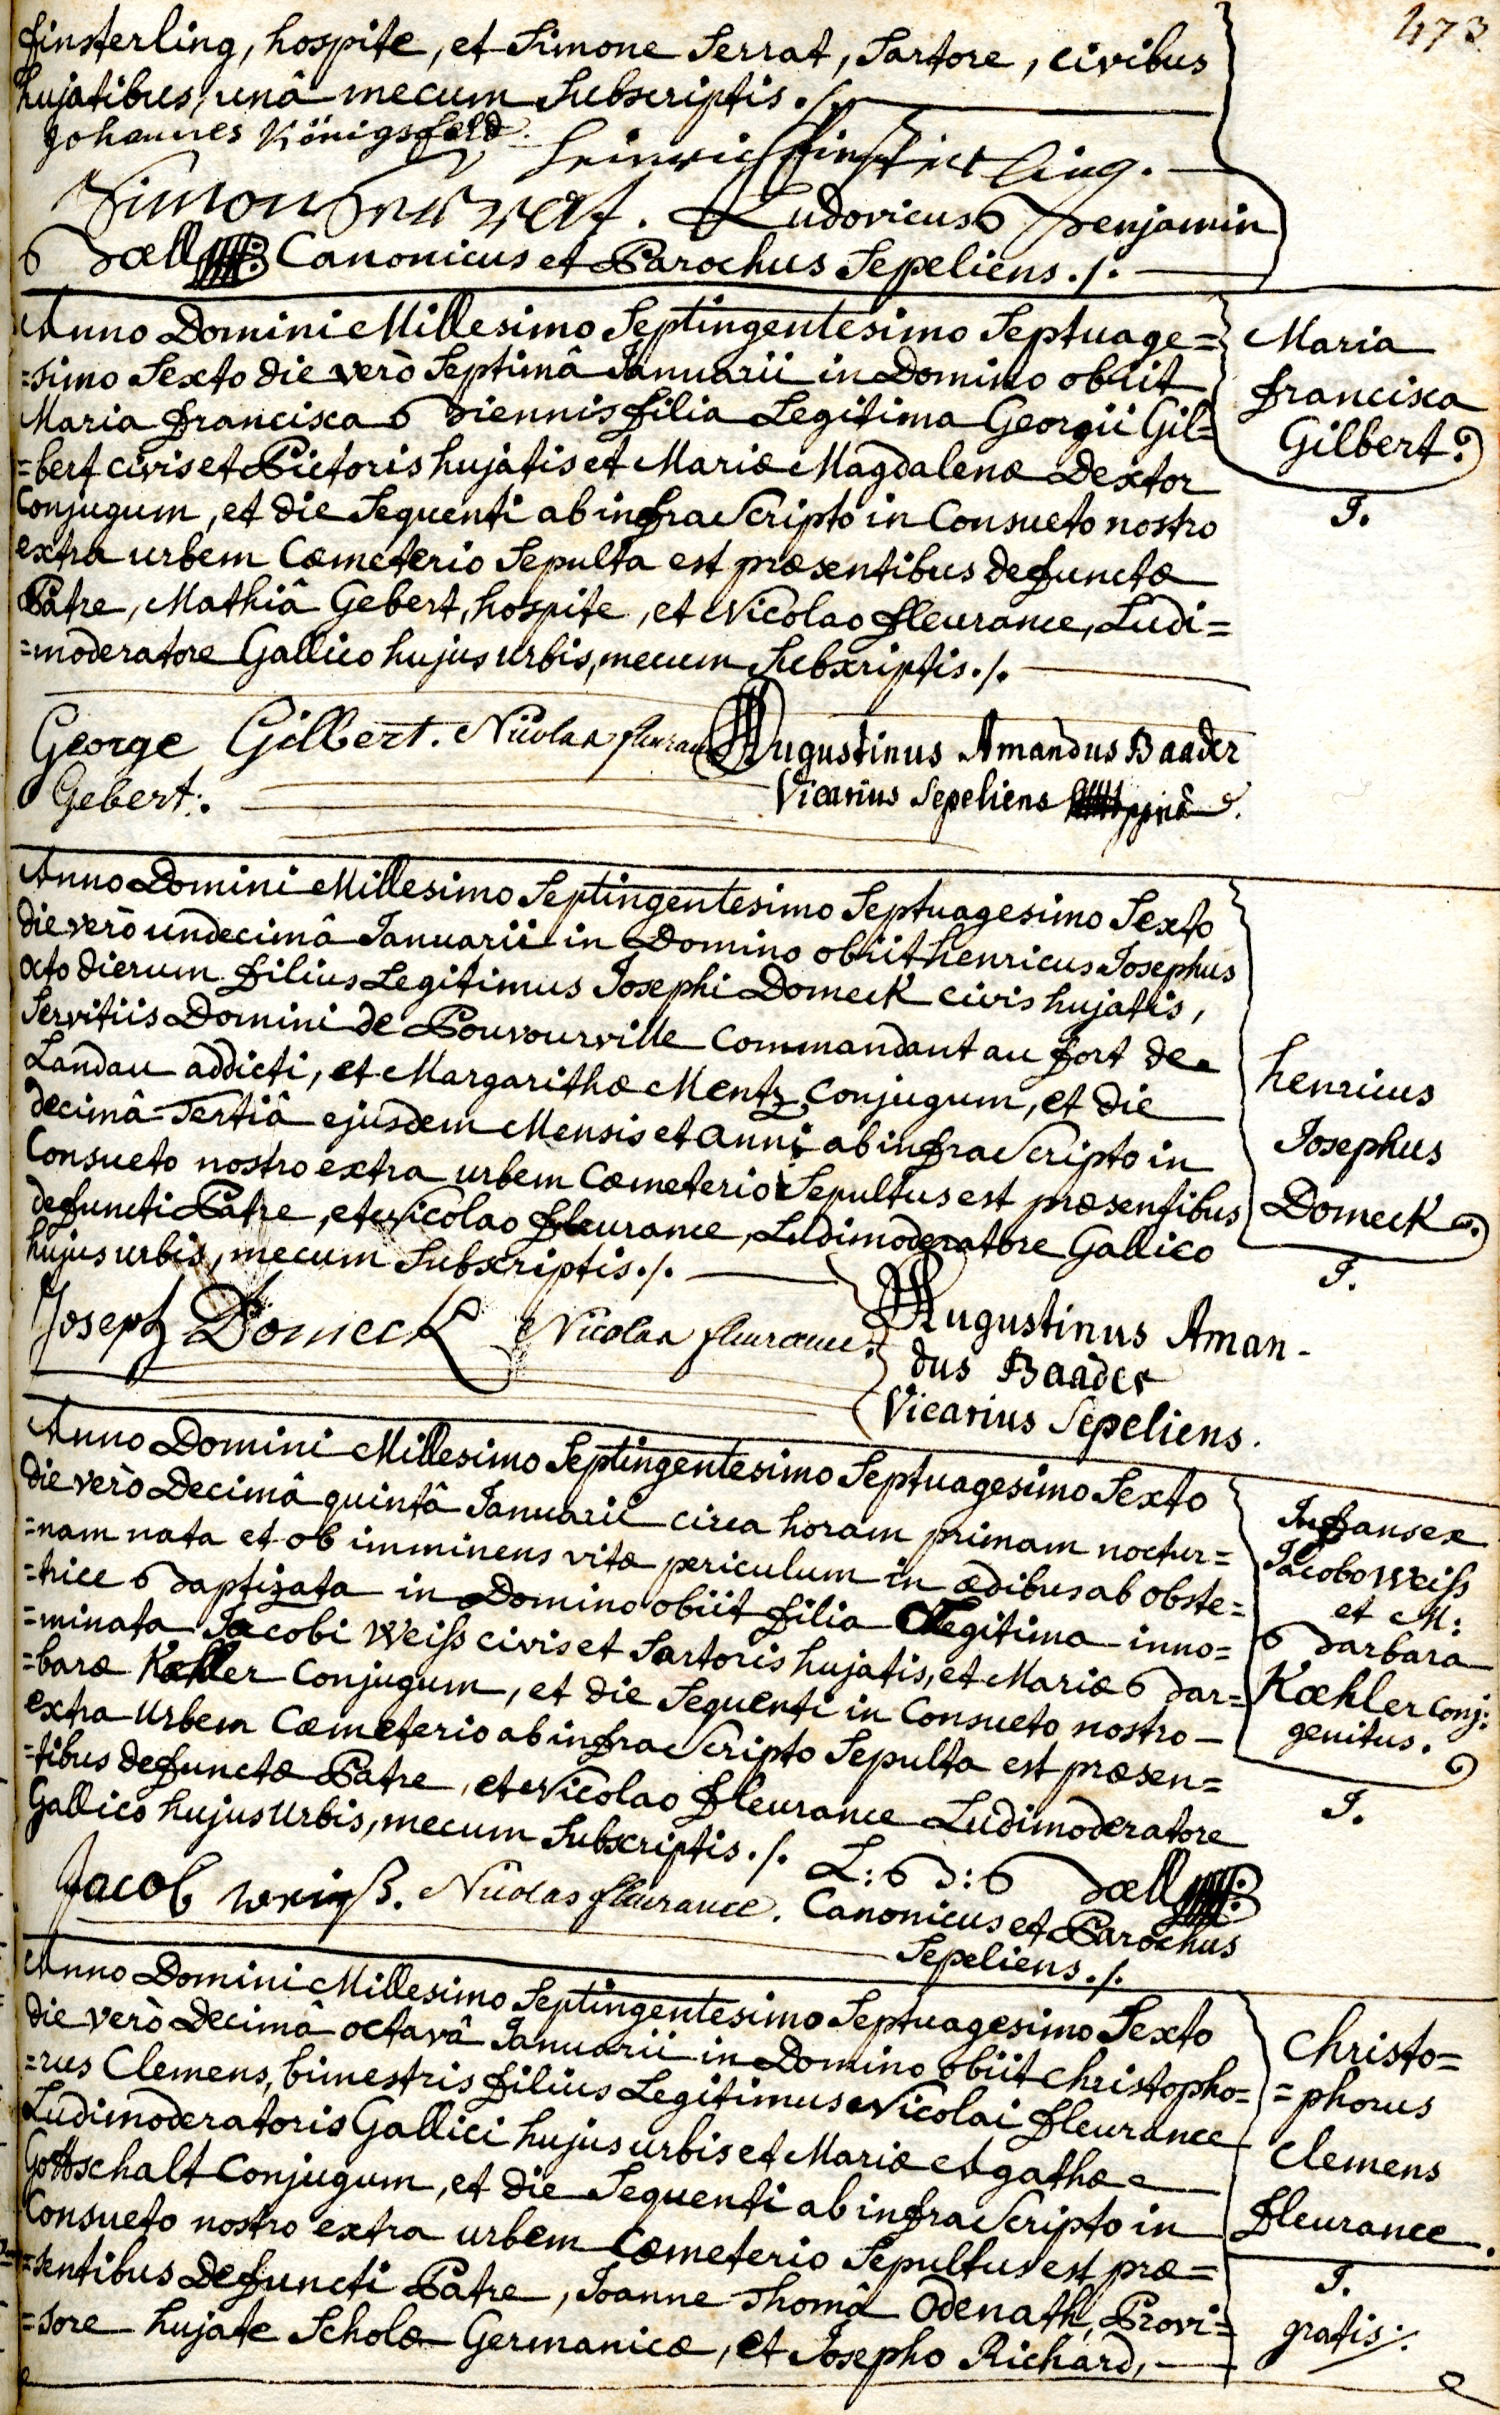 473
finsterling, hospite, et Simone Serrat, Sartore, civibus
hujatibus, unâ mecum Subscriptis ./.
Johannes Königsfeld.
Heinrich finsterling.
Simon Serrat. Ludovicus Benjamin
Bæll Canonicus et Parochus Sepeliens ./.
Anno Domini Millesimo Septingentesimo Septuage=
=simo Sexto die verò Septimâ Januarii in Domino obiit
Maria francisca Biennis filia Legitima Georgii Gil=
=bert civis et Pictoris hujatis et Mariæ Magdalenæ Dextor
Conjugum, et die Sequenti ab infra Scripto in Consueto nostro
extra urbem Cœmeterio Sepulta est præsentibus defunctæ
Patre, Mathiâ Gebert, hospite, et Nicolao fleurance, Ludi=
=moderatore Gallico hujus urbis, mecum Subscriptis ./.
Maria
francisca
Gilbert.
J.
George Gilbert. Nicolas fleurance Augustinus Amandus Baader
Gebert:.
Vicarius Sepeliens
Anno Domini Millesimo Septingentesimo Septuagesimo Sexto
die verò undecimâ Januarii in Domino obiit henricus Josephus
octo dierum filius Legitimus Josephi Domeck civis hujatis,
Servitiis Domini de Pouvourville Commandant au fort de
Landau addicti, et Margarithæ Mentz Conjugum, et die
decimâ Tertiâ ejusdem Mensis et anni ab infra Scripto in
Consueto nostro extra urbem Cœmeterio Sepultus est præsentibus
defuncti Patre, et Nicolao fleurance, Ludimoderatore Gallico
hujus urbis, mecum Subscriptis ./.
henricus
Josephus
Domeck
J.
Joseph Domeck Nicolas fleurance. Augustinus Aman-
dus Baader
Vicarius Sepeliens.
Anno Domini Millesimo Septingentesimo Septuagesimo Sexto
die verò Decimâ quintâ Januarii circa horam primam noctur=
=nam nata et ob imminens vitæ periculum in ædibus ab obste=
=trice Baptizata in Domino obiit filia Legitima inno=
=minata Jacobi Weiss civis et Sartoris hujatis, et Mariæ Bar=
=baræ Kœhler Conjugum, et die Sequenti in Consueto nostro
extra Urbem Cœmeterio ab infra Scripto Sepulta est præsen=
=tibus defunctæ Patre, et Nicolao fleurance Ludimoderatore
Gallico hujus Urbis, mecum Subscriptis ./.
Infans ex
Jacobo Weiss
et M:
Barbara
Kœhler conj:
genitus.
J.
Jacob weiß. Nicolas fleurance. L: B: Bæll
Canonicus et Parochus
Sepeliens ./.
Anno Domini Millesimo Septingentesimo Septuagesimo Sexto
die verò Decimâ octavâ Januarii in Domino obiit Christopho=
=rus Clemens, bimestris filius Legitimus Nicolai fleurance
Ludimoderatoris Gallici hujus urbis et Mariæ Agathæ
Gottschalt Conjugum, et die Sequenti ab infra Scripto in
Consueto nostro extra urbem Cœmeterio Sepultus est præ=
=sentibus Defuncti Patre, Joanne Thomâ Odenath, Provi=
=sore hujate Scholæ Germanicæ, et Josepho Richard,
Christo=
=phorus
Clemens
fleurance.
J.
gratis ./.